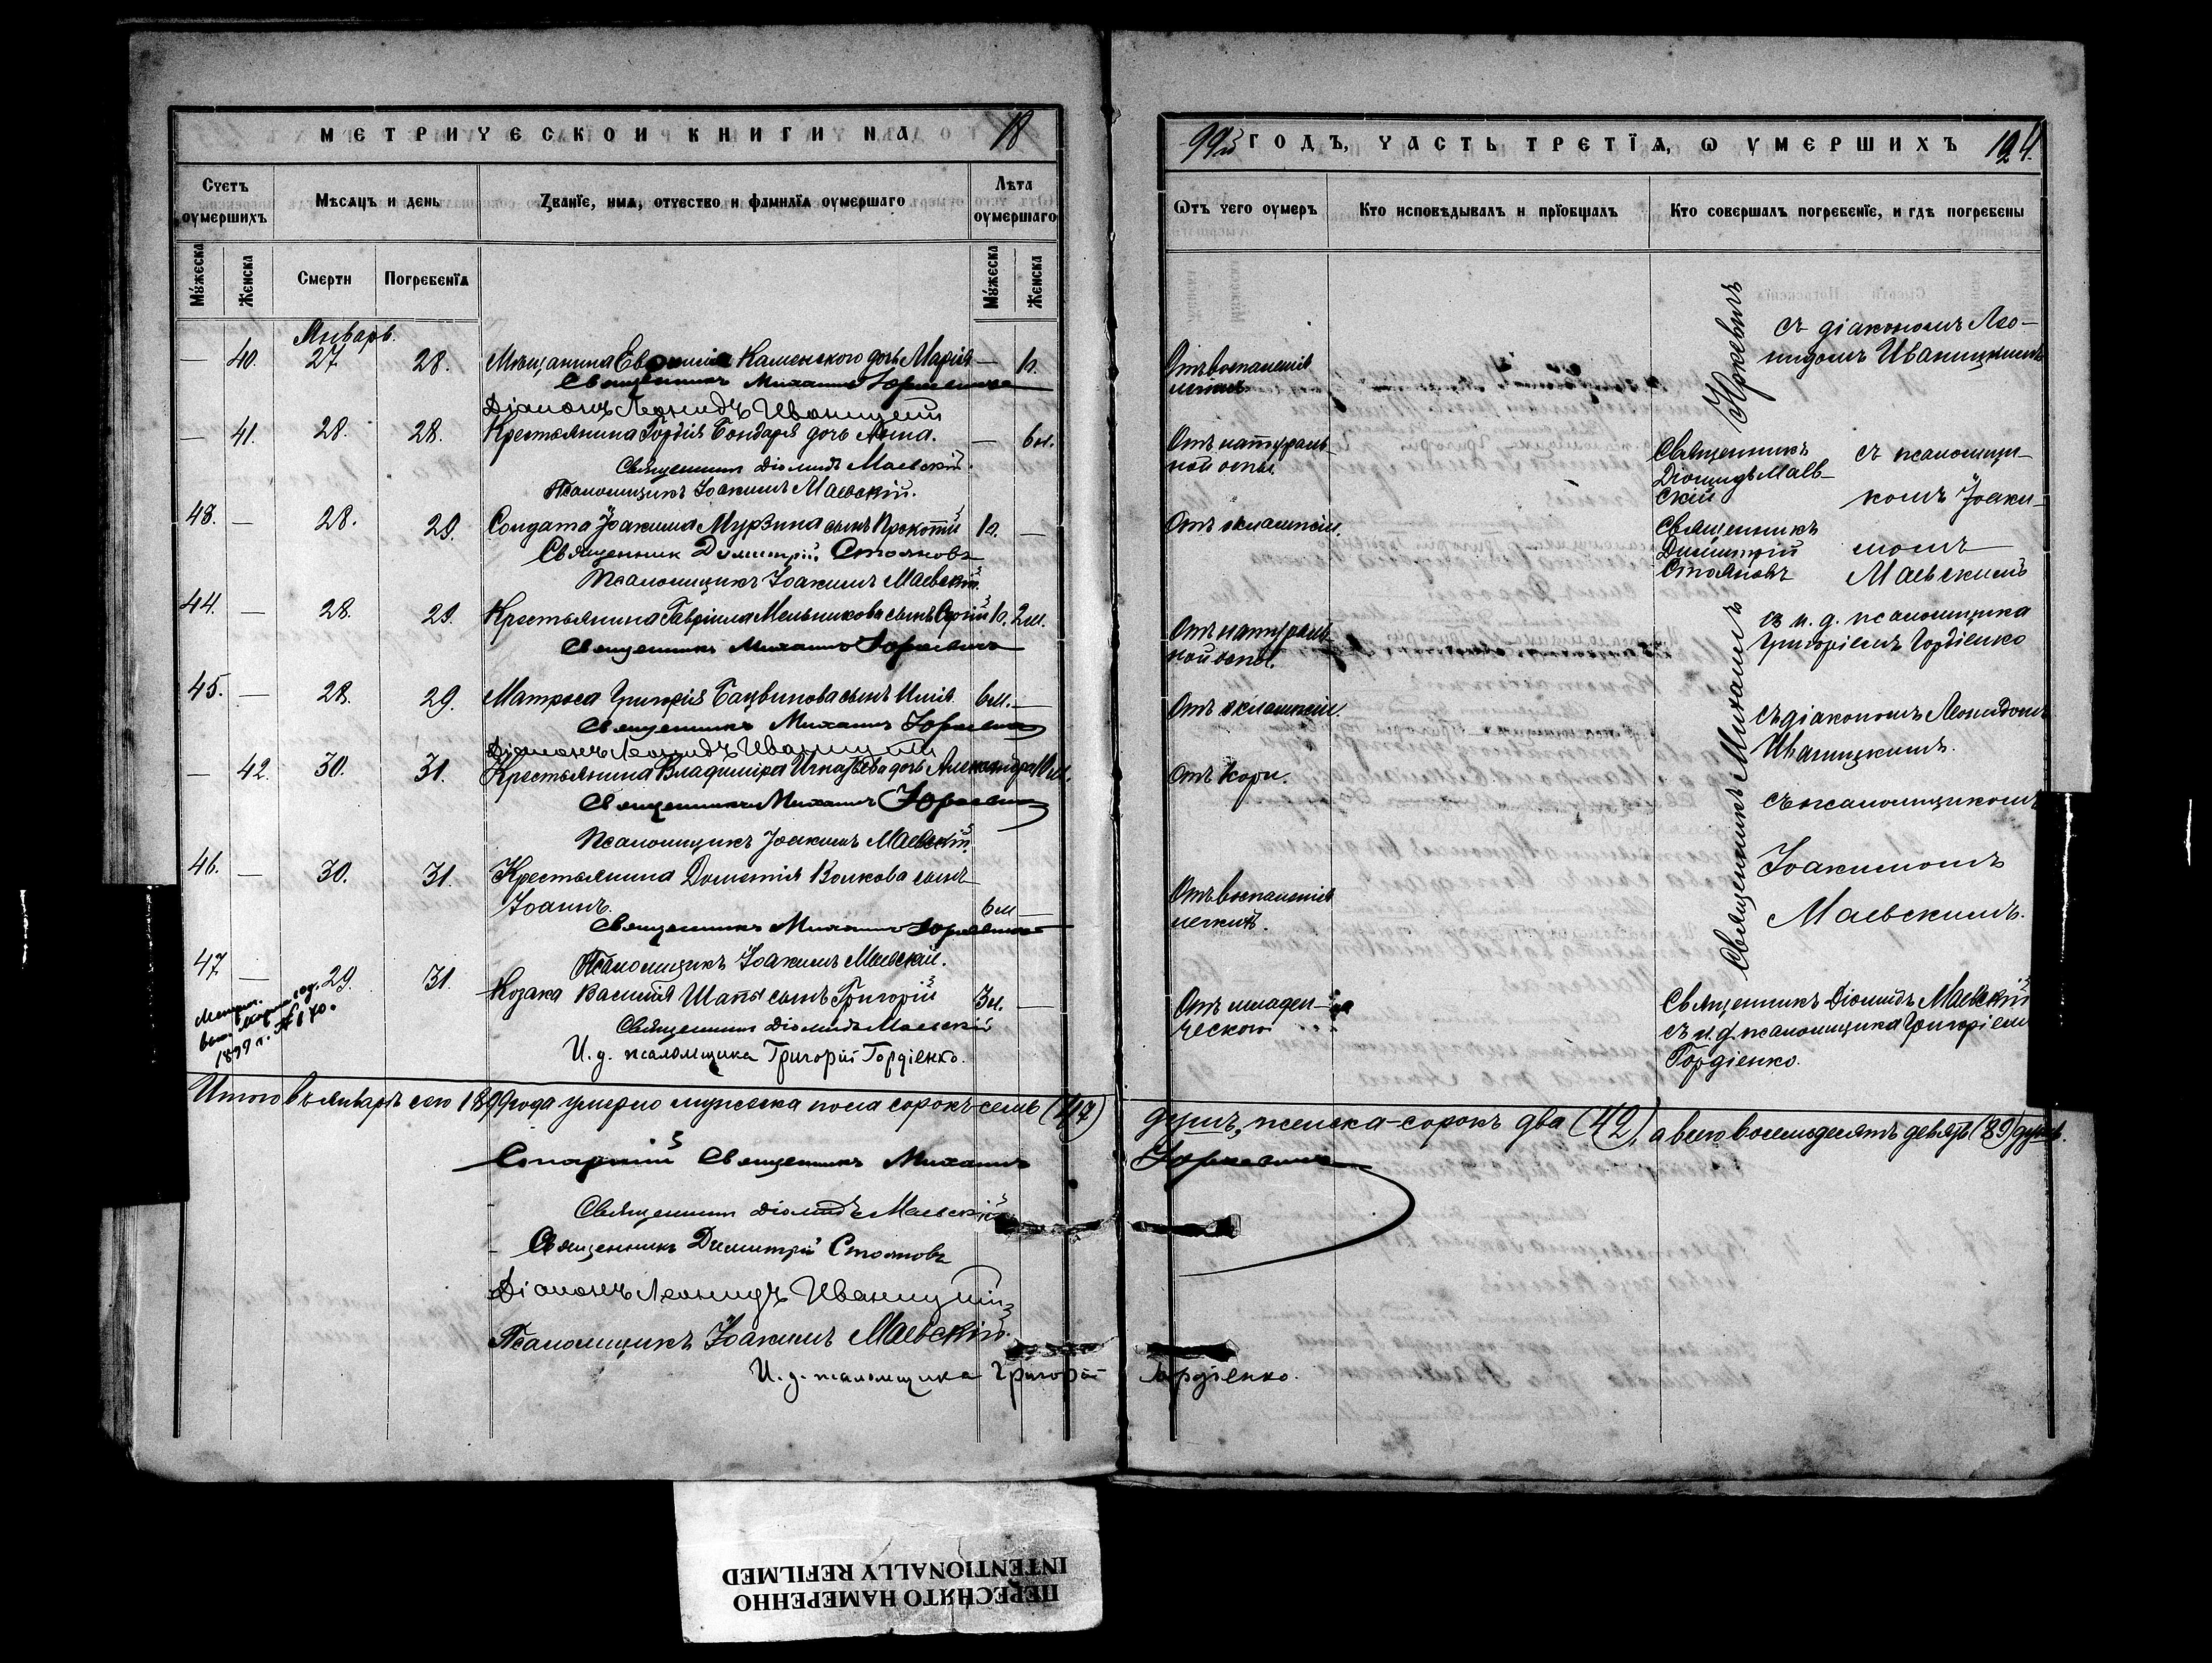 МЕТРИЧЕСКОЙ КНИГИ НА 18
99й ГОДЪ, ЧАСТЬ ТРЕТЇѦ, Ѡ ѸМЕРШИХЪ 124.
Счетъ оумершихъ
Мѣсѧцъ и день
Званїе, имѧ, отчество и фамилїѧ оумершаго
Лѣта оумершаго
Мꙋжеска
Женска
Смерти
Погребенїѧ
Мꙋжеска
Женска
Ѿтъ чего оумеръ
Кто исповѣдывалъ и прїобщалъ
Кто совершалъ погребенїе, и гдѣ погребены
Январь.
— 40. 27 28. Мѣщанина Каменскаго дочь Марія — 1г.
Священникъ Михаилъ Юркевичъ
Діаконъ Леонидъ Иваницкій
— 41. 28. 28. Крестьянина Гордія Бондаря дочь Анна. — 6м.
Священникъ Діомидъ Маевскій.
Псаломщикъ Іоакимъ Маевскій.
43. — 28. 29. Солдата Іоакима Мурзина сынъ Прокопій 1г. —
Священник Димитрій Стояновъ
Псаломщикъ Іоакимъ Маевскій.
44. — 28. 29. Крестьянина Гавріила Мельникова сынъ Сергій 1г. 2м.
Священникъ Михаилъ Юркевичъ
45. — 28. 29. Матроса Григорія сынъ Илія 6м. —
Священникъ Михаилъ Юркевичъ
Діаконъ Леонидъ Иваницкій
— 42. 30. 31. Крестьянина Владиміра Игнатьева дочь Александра
Священникъ Михаилъ Юркевичъ
Псаломщикъ Іоакимъ Маевскій.
46. — 30. 31. Крестьянина Дометія Волкова сынъ
Іоаннъ. 6м —
Священникъ Михаилъ Юркевичъ
Псаломщикъ Іоакимъ Маевскій.
47 — 29. 31. Козака Василія Шапы сынъ Григорій 3м. —
1899 г. № 170.
Священникъ Діомидъ Маевскій
И. д. псаломщика Григорій Гордіенко.
Итого въ январѣ сего 1899 года умерло мужеска пола сорокъ семь (47)
Старшій Священникъ Михаилъ
Священникъ Діомидъ Маевскій
Священникъ Димитрій Стояновъ
Діаконъ Леонидъ Иваницкій
Псаломщикъ Іоакимъ Маевскій.
И. д. псаломщика Григорій
Отъ воспаленія
легкихъ
Отъ натураль-
ной оспы.
Отъ эклампсіи.
Отъ натураль-
ной оспы.
Отъ эклампсіи.
Отъ кори.
Отъ воспаленія
легкихъ.
Отъ младен-
ческой
Священникъ Михаилъ Юркевичъ
съ діакономъ Лео-
нидомъ Иваницкимъ
Священникъ
Діомидъ Маев-
скій
съ псаломщи-
комъ Іоаки-
Священникъ
Димитрій
Стояновъ
момъ
Маевскимъ
съ и. д. псаломщика
Григоріемъ Гордіенко
съ діакономъ Леонидомъ
Иваницкимъ.
съ псаломщикомъ
Іоакимомъ
Маевскимъ.
Священникъ Діомидъ Маевскій
съ и. д. псаломщика Григоріемъ
Гордіенко.
душъ, женска-сорокъ два (42), а всего восемьдесятъ девять (89) душъ.
Юркевичъ
Гордіенко.
ПЕРЕСНЯТО НАМЕРЕННО
INTENTIONALLY REFILMED